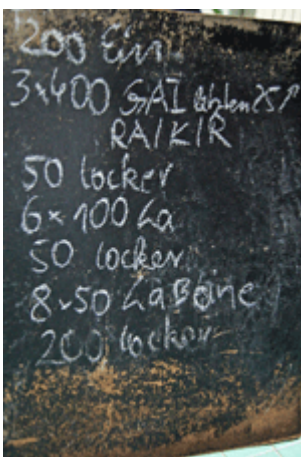 200 Ein
3x400 GAI letzten 25↑
RA/K/R
50 locker
6x100 La
50 locker
8x50 La Beine
200 locker